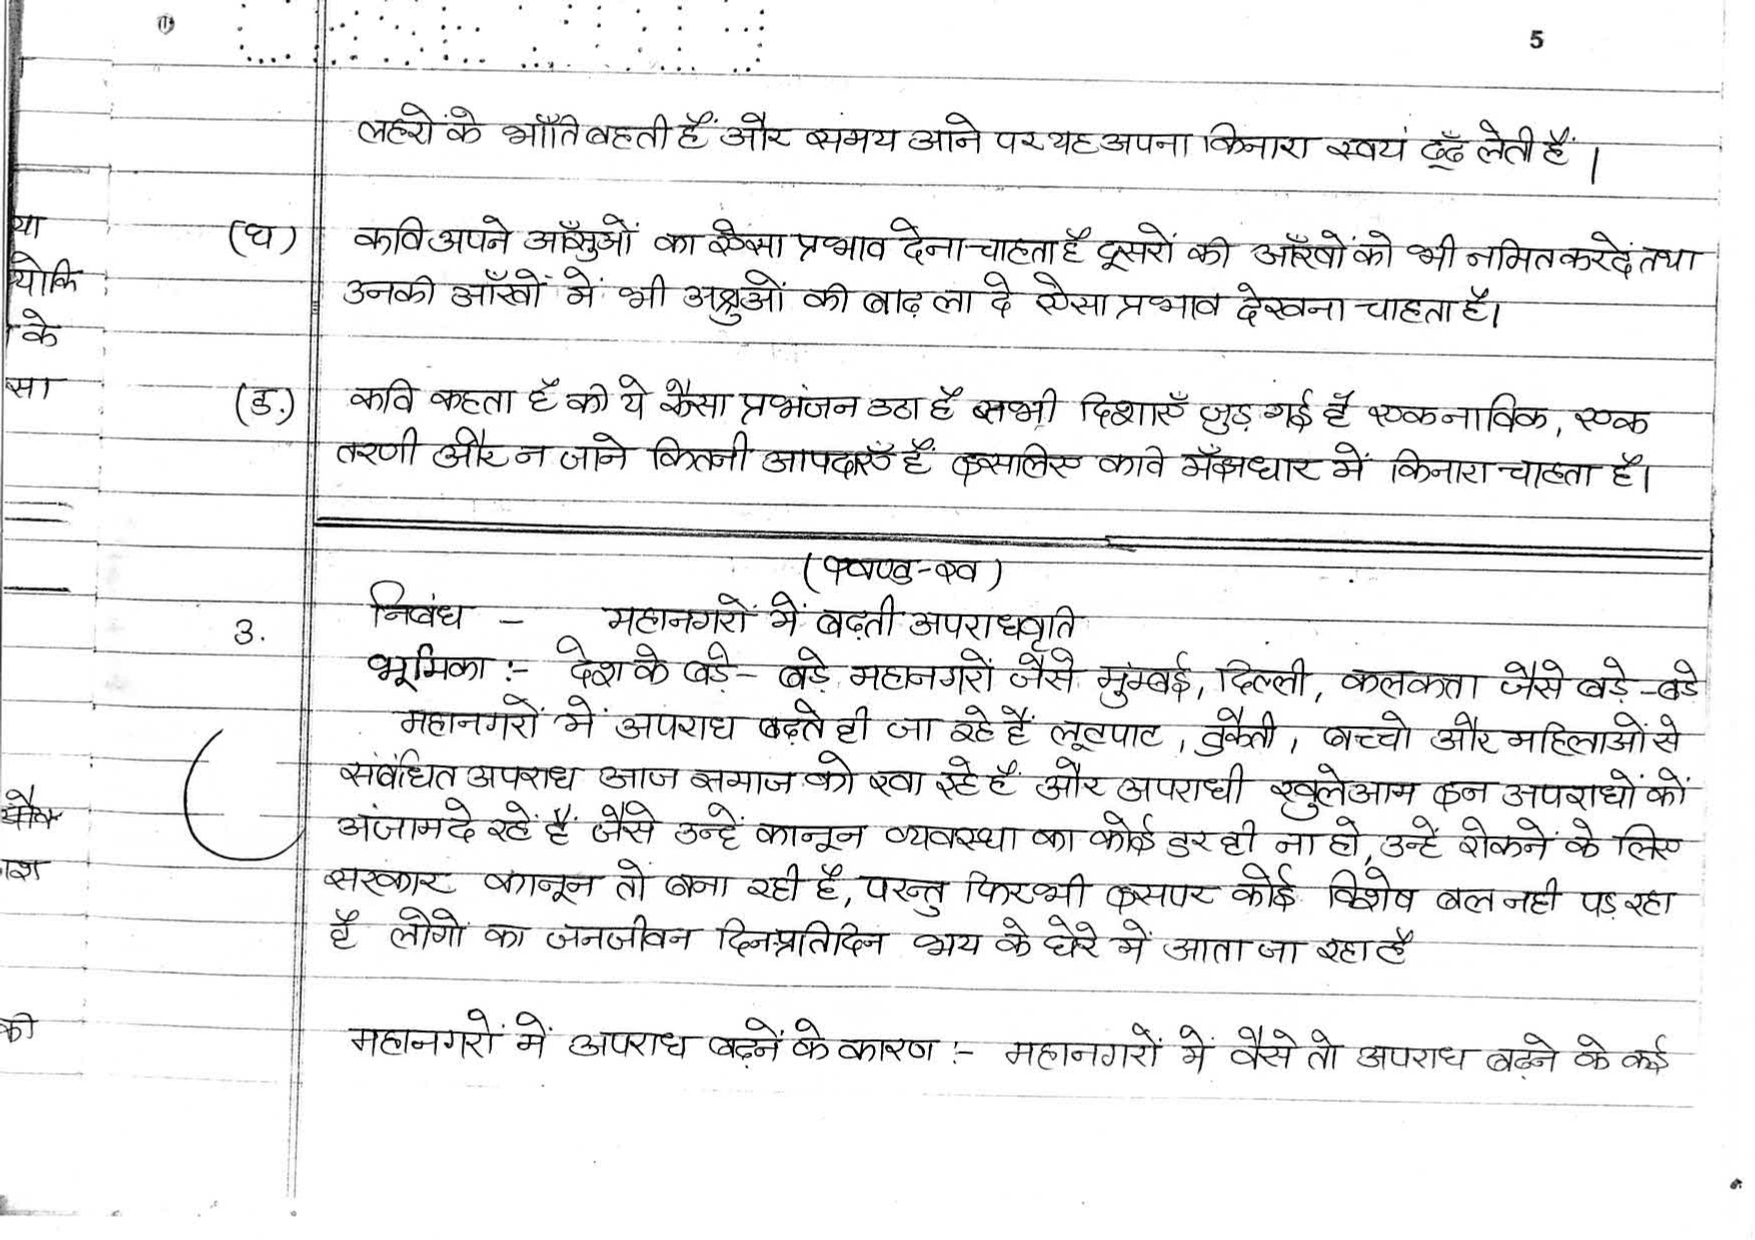 5
लहरों के भाँति बहती हैं और समय आने पर यह अपना किनारा स्वयं ढूँढ लेती हैं ।
(घ) कवि अपने आँसुओं का ऐसा प्रभाव देना चाहता है दूसरों की आँखों को भी नमित कर दें तथा
उनकी आँखों में भी अश्रुओं की बाढ़ ला दे ऐसा प्रभाव देखना चाहता है।
(ङ.) कवि कहता है की ये कैसा प्रभंजन उठा है सभी दिशाएँ जुड़ गई हैं एक नाविक, एक
तरणी और न जाने कितनी आपदाएँ हैं इसलिए कवि मँझधार में किनारा चाहता है।
(खण्ड-ख)
3. निबंध - महानगरों में बढ़ती अपराधवृति
भूमिका :- देश के बड़े- बड़े महानगरों जैसे मुंम्बई, दिल्ली, कलकत्ता जैसे बड़े-बडे
महानगरों में अपराध बढ़ते ही जा रहे हैं लूटपाट, डकैती, बच्चो और महिलाओं से
संबंधित अपराध आज समाज को खा रहे हैं और अपराधी खुलेआम इन अपराधों कों
अंजाम दे रहें हैं जैसे उन्हें कानून व्यवस्था का कोई डर ही ना हो, उन्हें रोकनें के लिए
सरकार कानून तो बना रही है, परन्तु फिरभी इसपर कोई विशेष बल नही पड़ रहा
है लोगों का जनजीवन दिनप्रतिदिन भय के घेरे में आता जा रहा है
महानगरों में अपराध बढ़नें के कारण :- महानगरों में वैसे तो अपराध बढ़ने के कई
या
योकि
के
सा
की